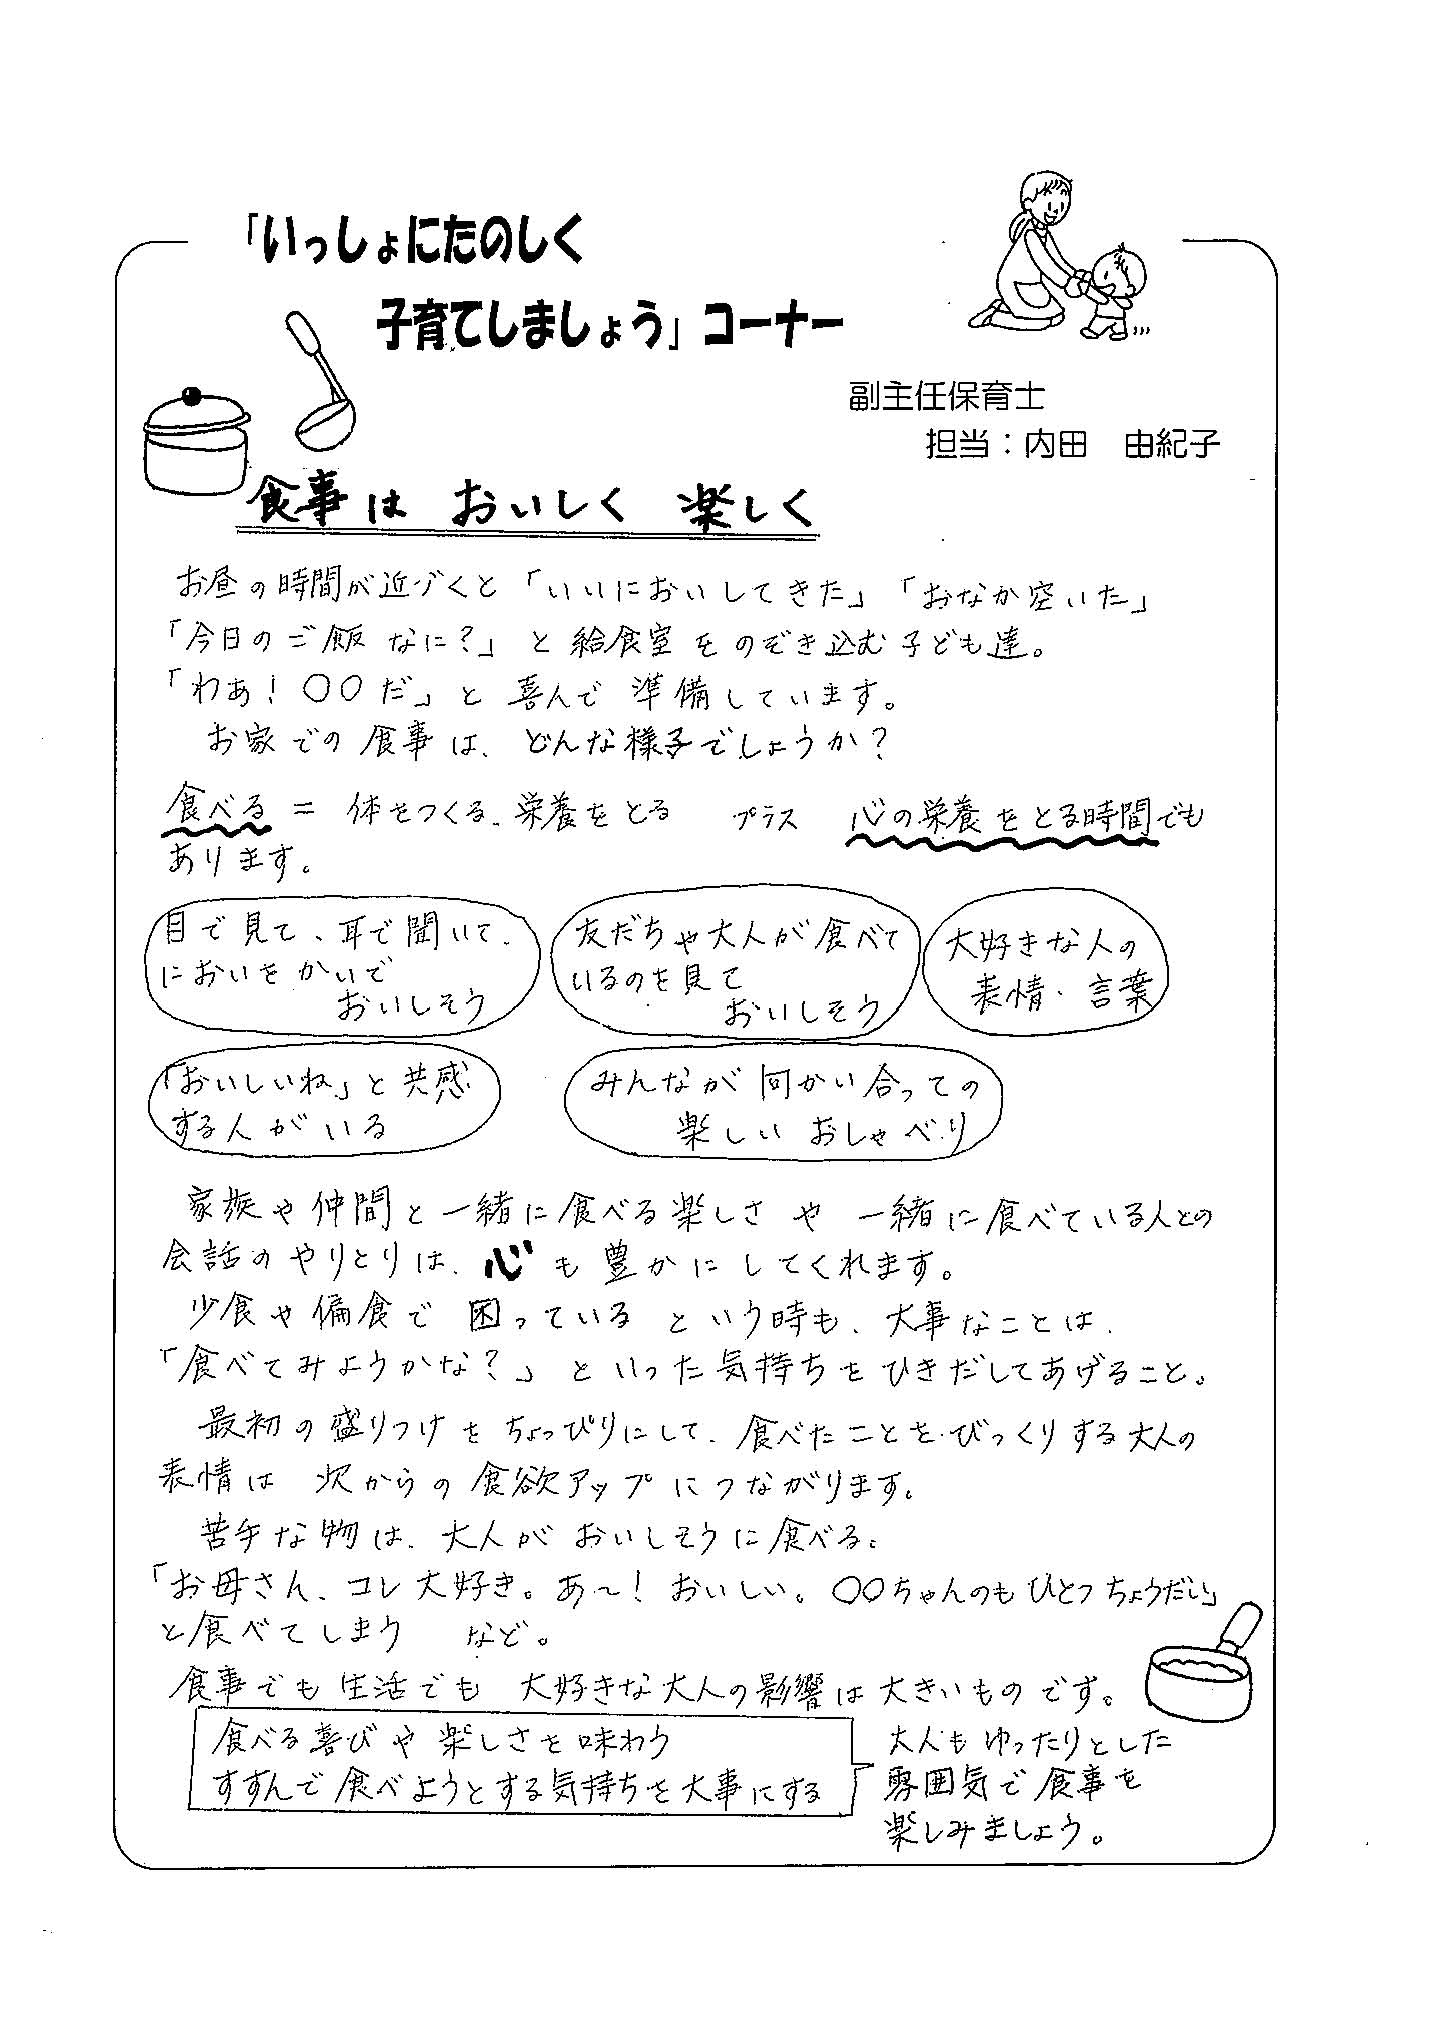 「いっしょにたのしく
子育てしましょう」コーナー
副主任保育士
担当：内田　由紀子
食事は　おいしく　楽しく
お昼の時間が近づくと「いいにおいしてきた」「おなか空いた」
「今日のご飯なに？」と給食室をのぞき込む子ども達。
「わぁ！〇〇だ」と喜んで準備しています。
お家での食事は、どんな様子でしょうか？
食べる ＝ 体をつくる、栄養をとる　プラス　心の栄養をとる時間でも
あります。
目で見て、耳で聞いて、
においをかいで
おいしそう
友だちや大人が食べて
いるのを見て
おいしそう
大好きな人の
表情・言葉
「おいしいね」と共感
する人がいる
みんなが向かい合っての
楽しいおしゃべり
家族や仲間と一緒に食べる楽しさや一緒に食べている人との
会話のやりとりは、心も豊かにしてくれます。
少食や偏食で困っているという時も、大事なことは、
「食べてみようかな？」といった気持ちをひきだしてあげること。
最初の盛りつけをちょっぴりにして、食べたことをびっくりする大人の
表情は次からの食欲アップにつながります。
苦手な物は、大人がおいしそうに食べる。
「お母さん、コレ大好き。あ～！おいしい。〇〇ちゃんのもひとつちょうだい」
と食べてしまう　など。
食事でも生活でも大好きな大人の影響は大きいものです。
食べる喜びや楽しさを味わう
すすんで食べようとする気持ちを大事にする
大人もゆったりとした
雰囲気で食事を
楽しみましょう。